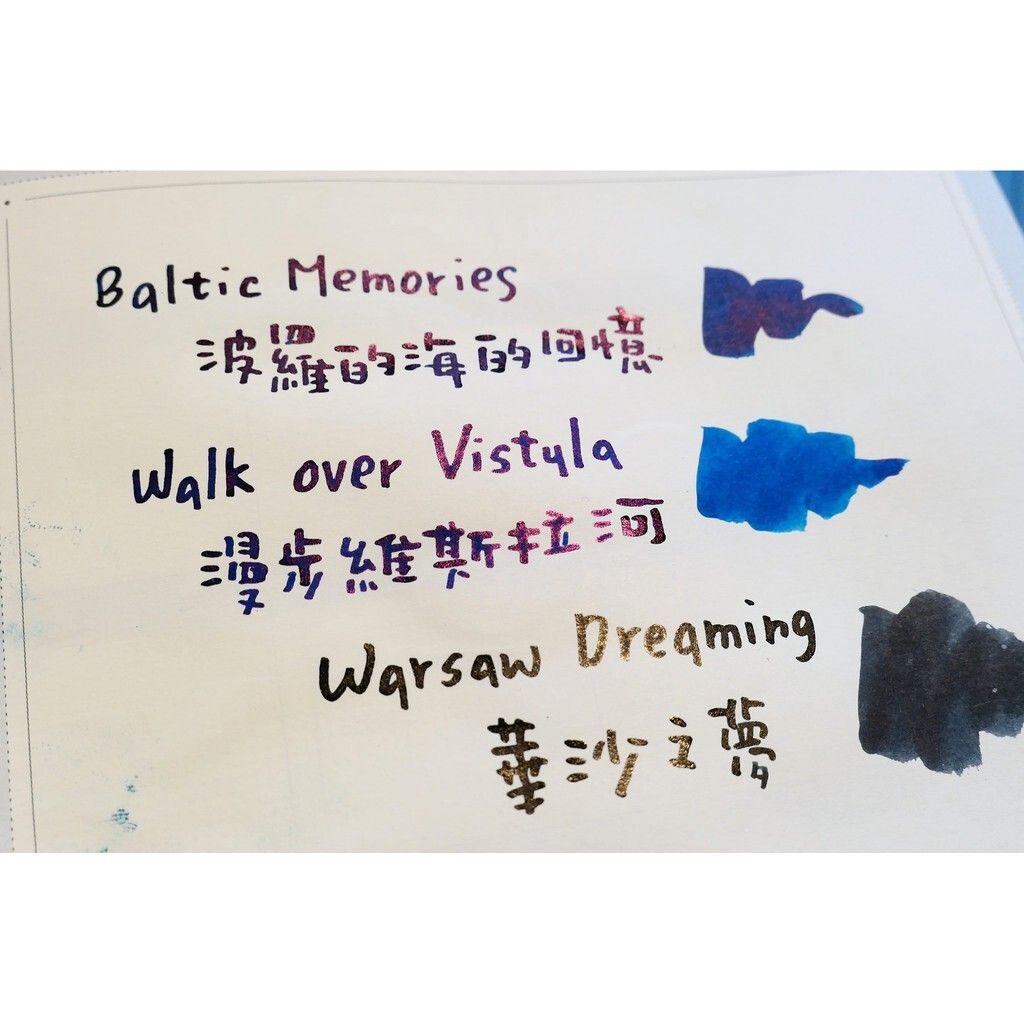 Baltic Memories
波羅的海的回憶
Walk over Vistula
漫步維斯拉河
Warsaw Dreaming
華沙之夢